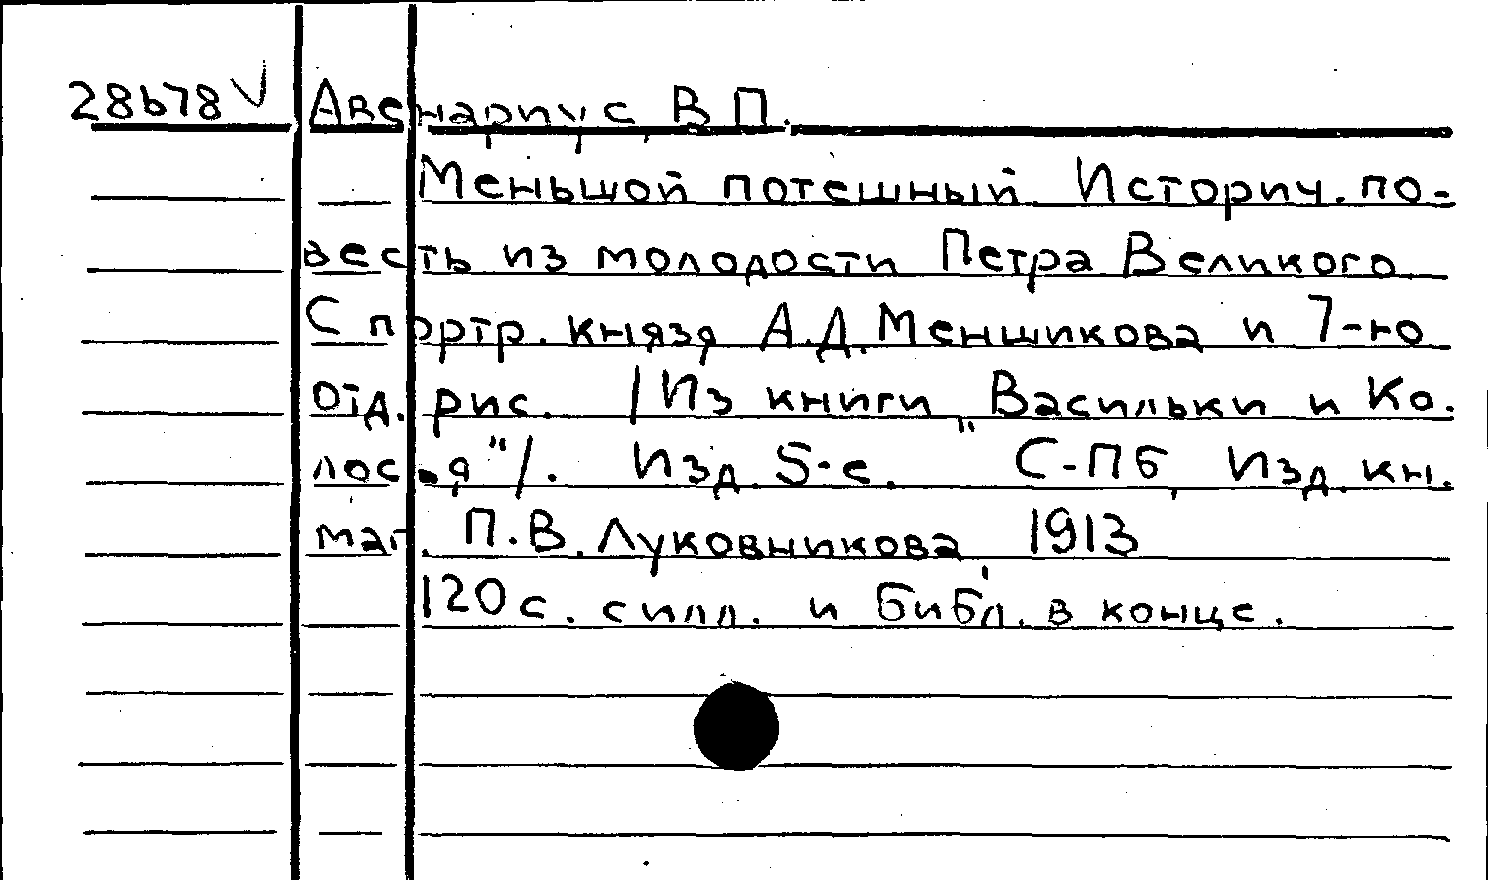 28678 V Авенариус, В.П.
Меньшой потешный. Историч. по-
весть из молодости Петра Великого.
С портр. князя А.Д. Меншикова и 7-ю
отд. рис. /Из книги „Васильки и Ко-
лосья"/. Изд. 5-е. С-Пб, Изд. кн.
маг. П.В. Луковникова, 1913
120 с. с илл. и библ. в конце.